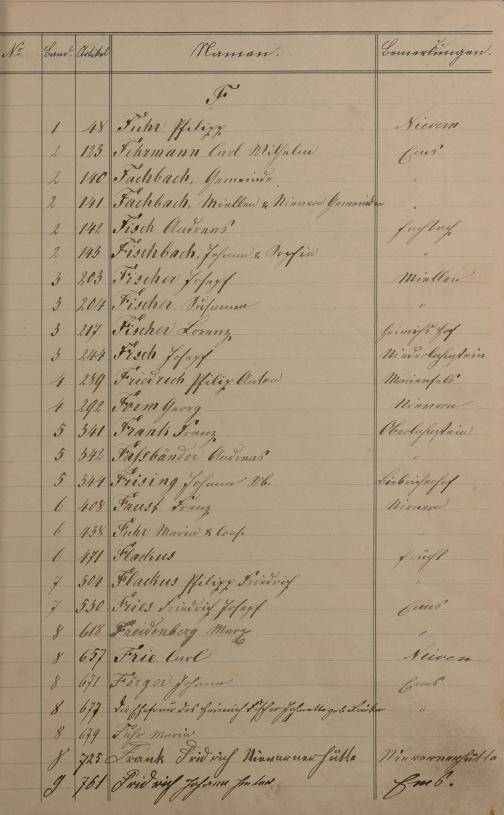 No. Band. Artikel Namen. Bemerkungen.
F
1 48 Fuhr Philipp Nievern
2 125 Fehrmann Carl Wilhelm Ems
2 140 Fachbach, Gemeinde "
2 141 Fachbach, Miellen & Nievern Gemeinden
2 142 Fisch Andreas Fachbach
2 143 Fischbach, Johann & Sophia "
3 203 Fischer Josepf Miellen
3 204 Fischer, Susanna "
3 217 Fischer Lorenz Heinrichs Hof
3 244 Fisch Josepf Niederlahnstein
4 289 Friedrich Philip Anton Marienfels
4 292 Form Georg Nievern
5 341 Frank Franz Oberlahnstein
5 342 Faßbänder Andreas "
5 344 Frising Johann
6 408 Faust Franz Nievern
6 438 Fuhr Maria &
6 471 Flachus Frücht
7 504 Flachus Philipp Friedrich "
7 530 Fries Friedrich Josepf Ems
8 618 Freidenberg Marx "
8 657 Frie Carl Nieven
8 671 Johann Ems
8 677 Die Ehefrau des Heinrich Fischer geb. "
8 679 Fuhr Maria
8 725 Frank Fridrich Nievernerhütte Nievernerhütte
9 761 Fridrich Johann Ems.